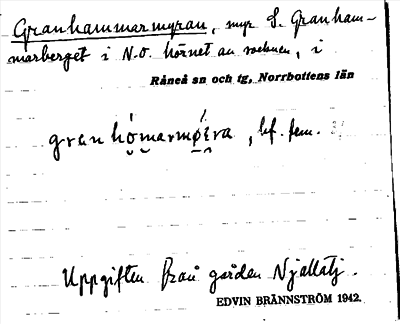 Granhammarmyran, myr S. Granham-
marberget i N.O. hörnet av socknen, i
Råneå sn och tg, Norrbottens län
granhómarmǿra, bf. fem.
Uppgiften från gården Njallatj.
EDVIN BRÄNNSTRÖM 1942.